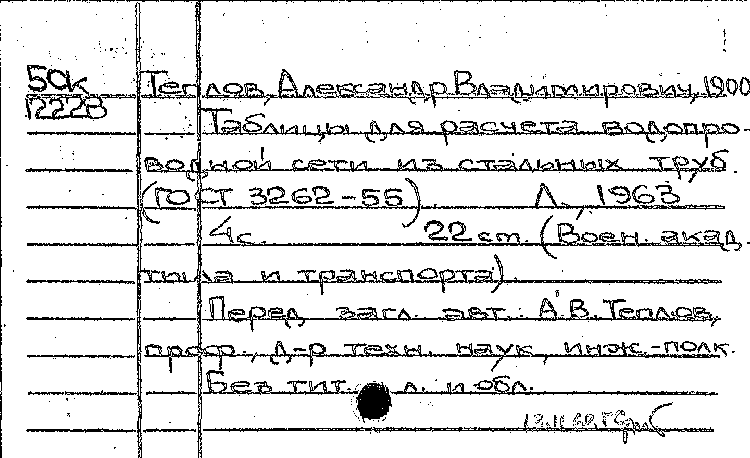 50к Теплов, Александр Владимирович, 1900
1222в Таблицы для расчета водопро-
водной сети из стальных труб.
(ГОСТ 3262-55) Л., 1963
4с. 22 см. (Воен. акад.
тыла и транспорта).
Перед загл. авт.: А.В. Теплов,
проф., д-р техн. наук, инж.-полк.
Без тит. л. и обл.